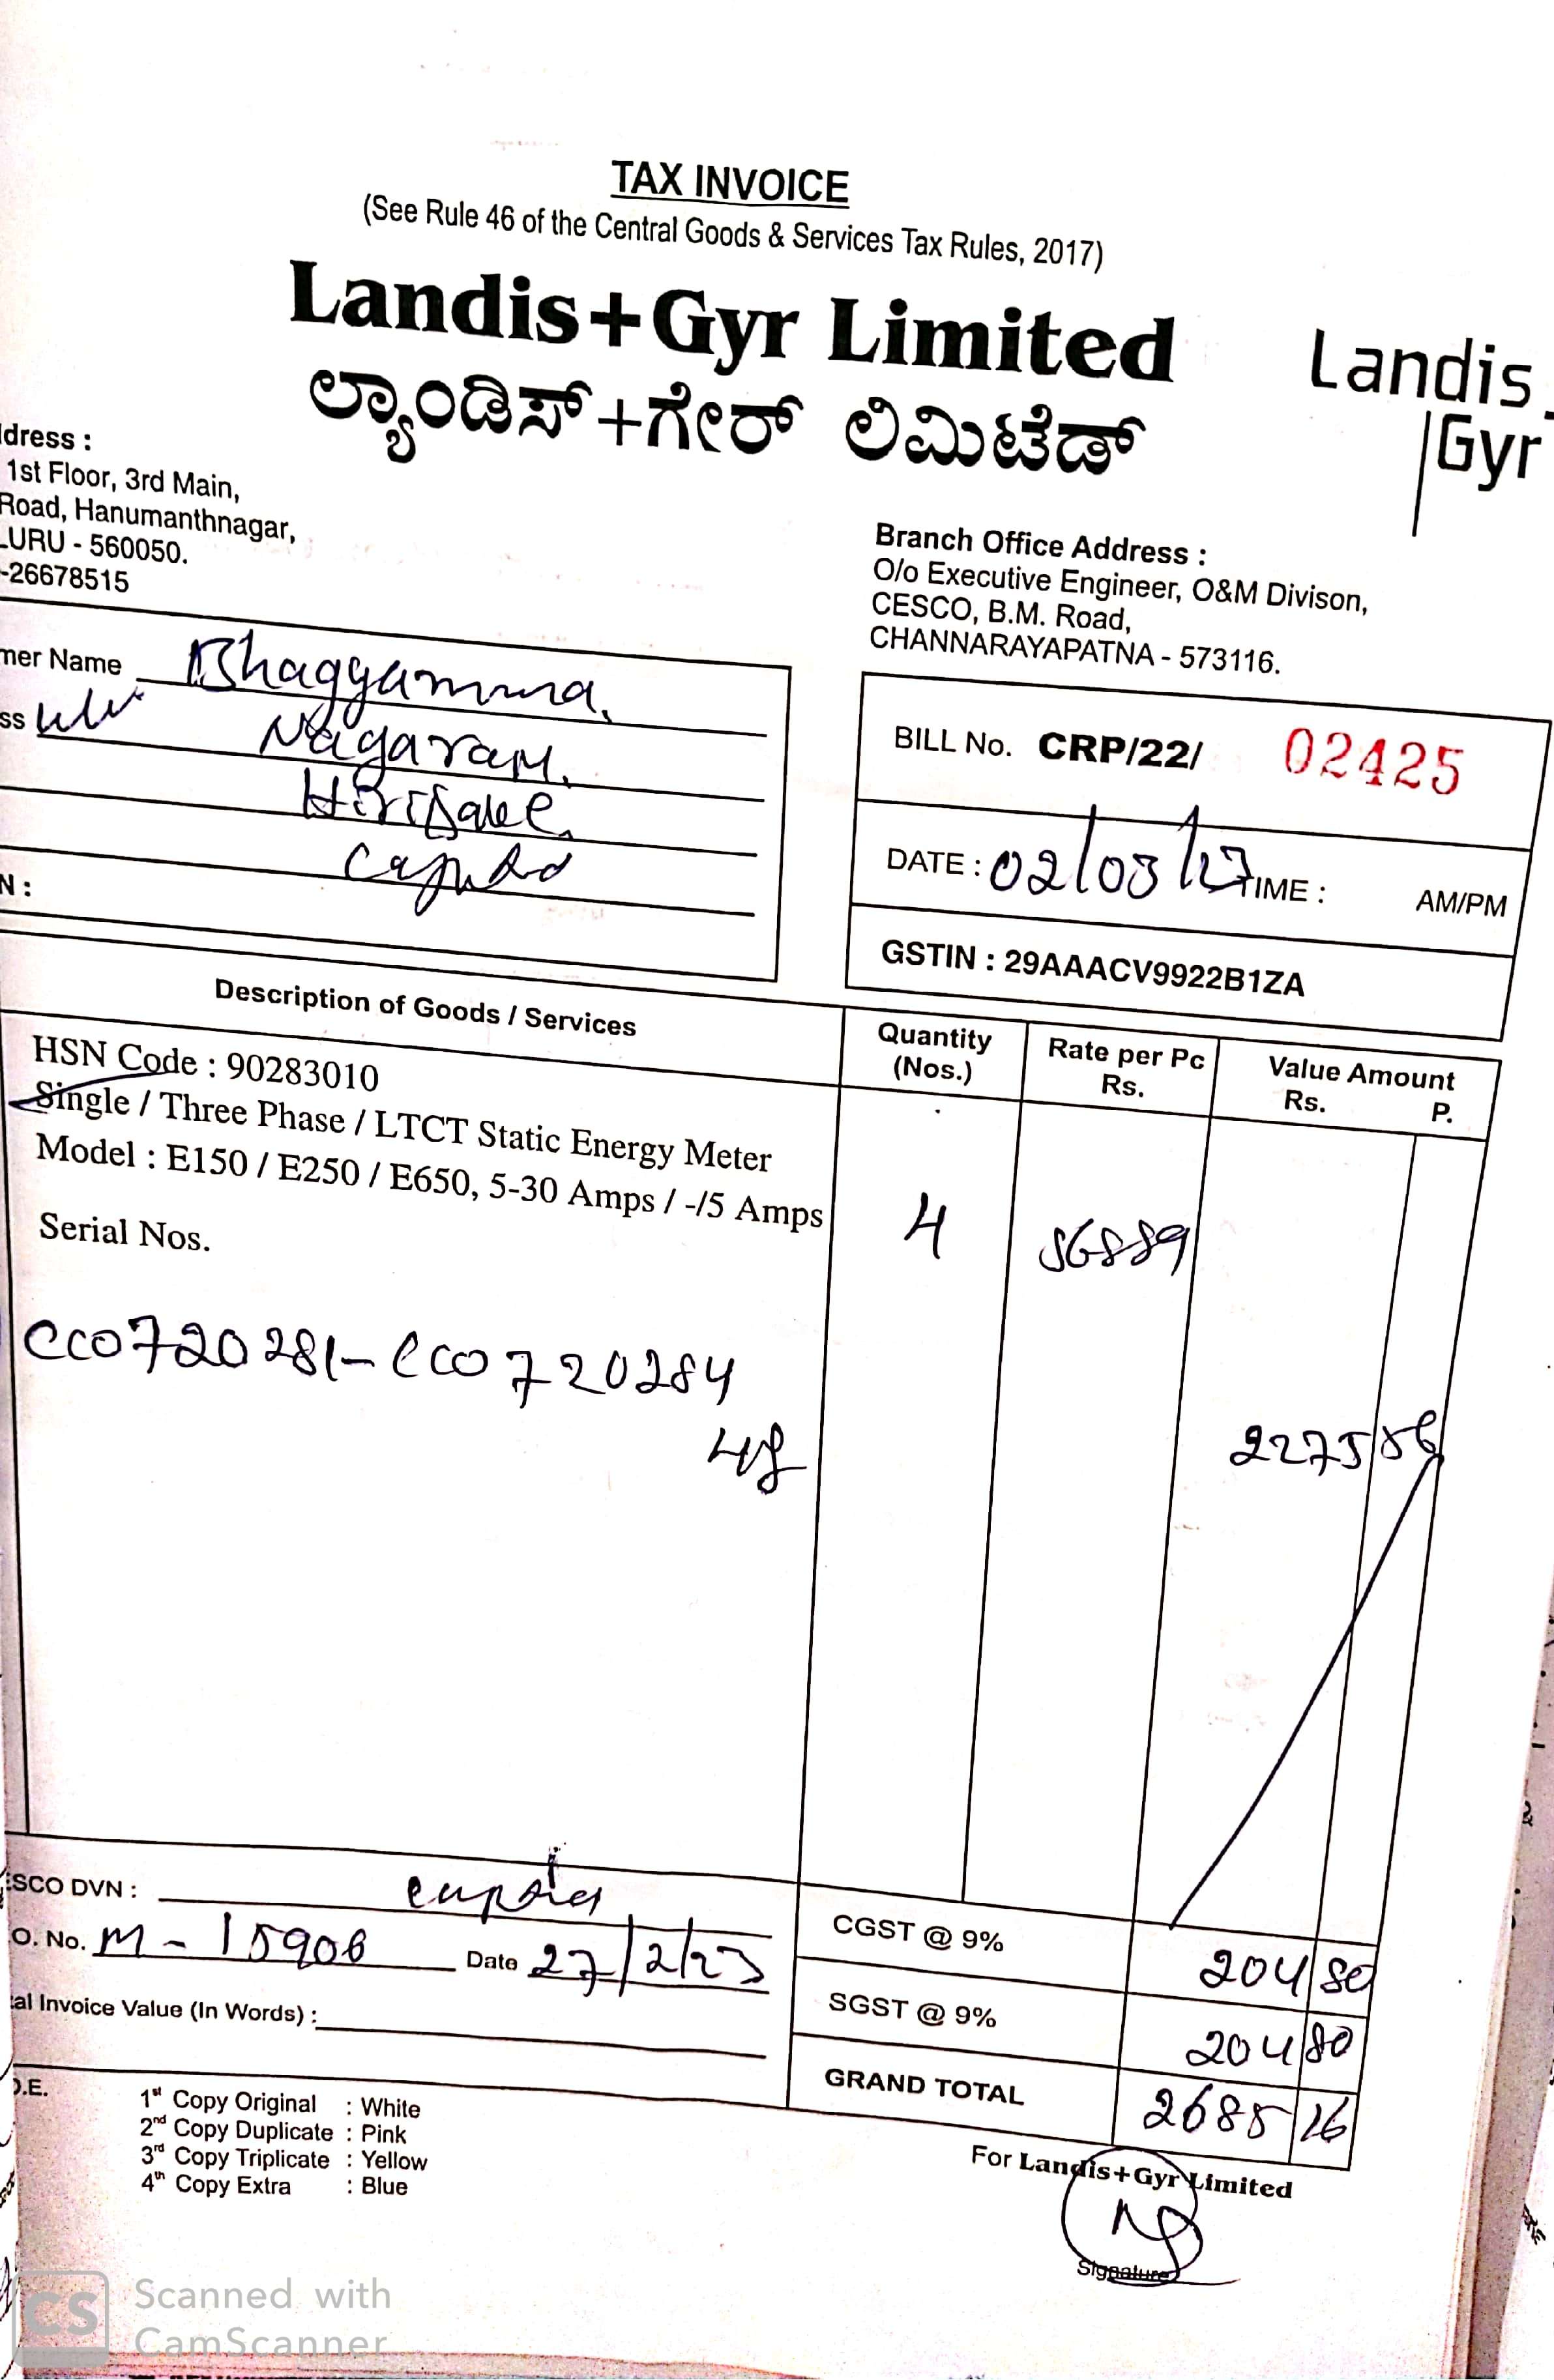 TAX INVOICE
(See Rule 46 of the Central Goods & Services Tax Rules, 2017)
Landis+Gyr Limited
ಲ್ಯಾಂಡಿಸ್+ಗೇರ್ ಲಿಮಿಟೆಡ್
Landis
Gyr
dress :
1st Floor, 3rd Main,
Road, Hanumanthnagar,
LURU - 560050.
-26678515
Branch Office Address :
O/o Executive Engineer, O&M Divison,
CESCO, B.M. Road,
CHANNARAYAPATNA - 573116.
mer Name Bhagyamma,
ss
Nagaraj,
Hirisave,
N :
BILL No. CRP/22/ 02425
DATE : 02/03/23 TIME : AM/PM
GSTIN : 29AAACV9922B1ZA
Description of Goods / Services
Quantity (Nos.)
Rate per Pc Rs.
Value Amount Rs. P.
HSN Code : 90283010
Single / Three Phase / LTCT Static Energy Meter
Model : E150 / E250 / E650, 5-30 Amps / -/5 Amps
Serial Nos.
4
56889
CC0720281-CC0720284
2275 56
ESCO DVN :
O. No. M-15906 Date 27/2/23
al Invoice Value (In Words) :
CGST @ 9% 204 80
SGST @ 9% 204 80
GRAND TOTAL 2685 16
O.E.
1st Copy Original : White
2nd Copy Duplicate : Pink
3rd Copy Triplicate : Yellow
4th Copy Extra : Blue
For Landis+Gyr Limited
Signature
CS Scanned with
CamScanner